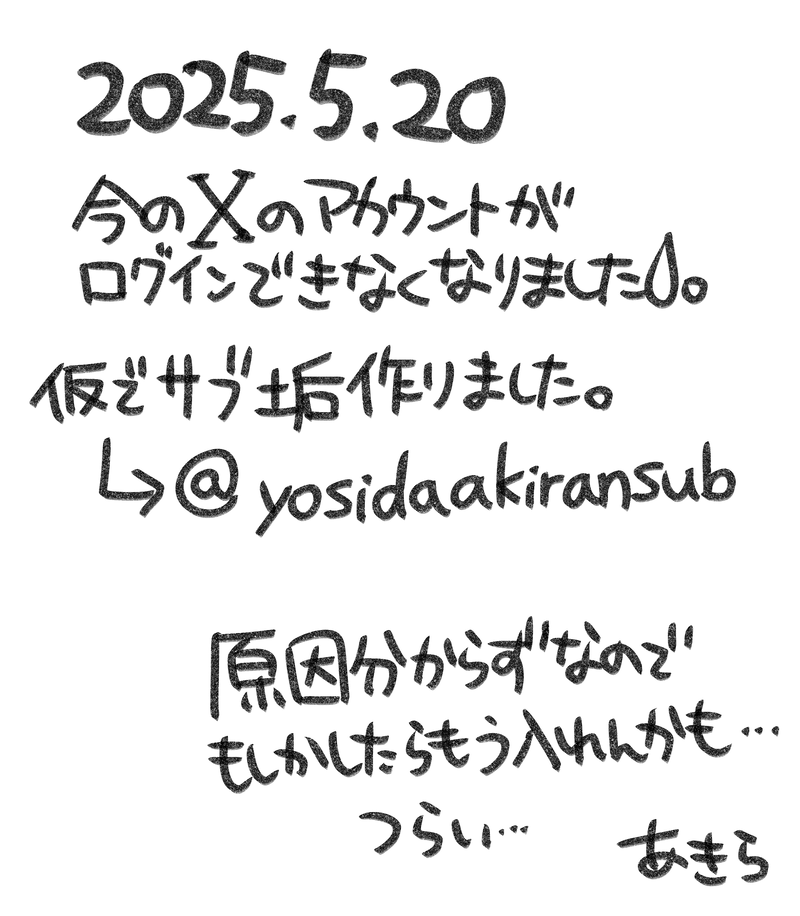 2025.5.20
今のXのアカウントが
ログインできなくなりました💧。
仮でサブ垢作りました。
↳@yosidaakiransub
原因分からずなので
もしかしたらもう入れんかも…
つらい…
あきら